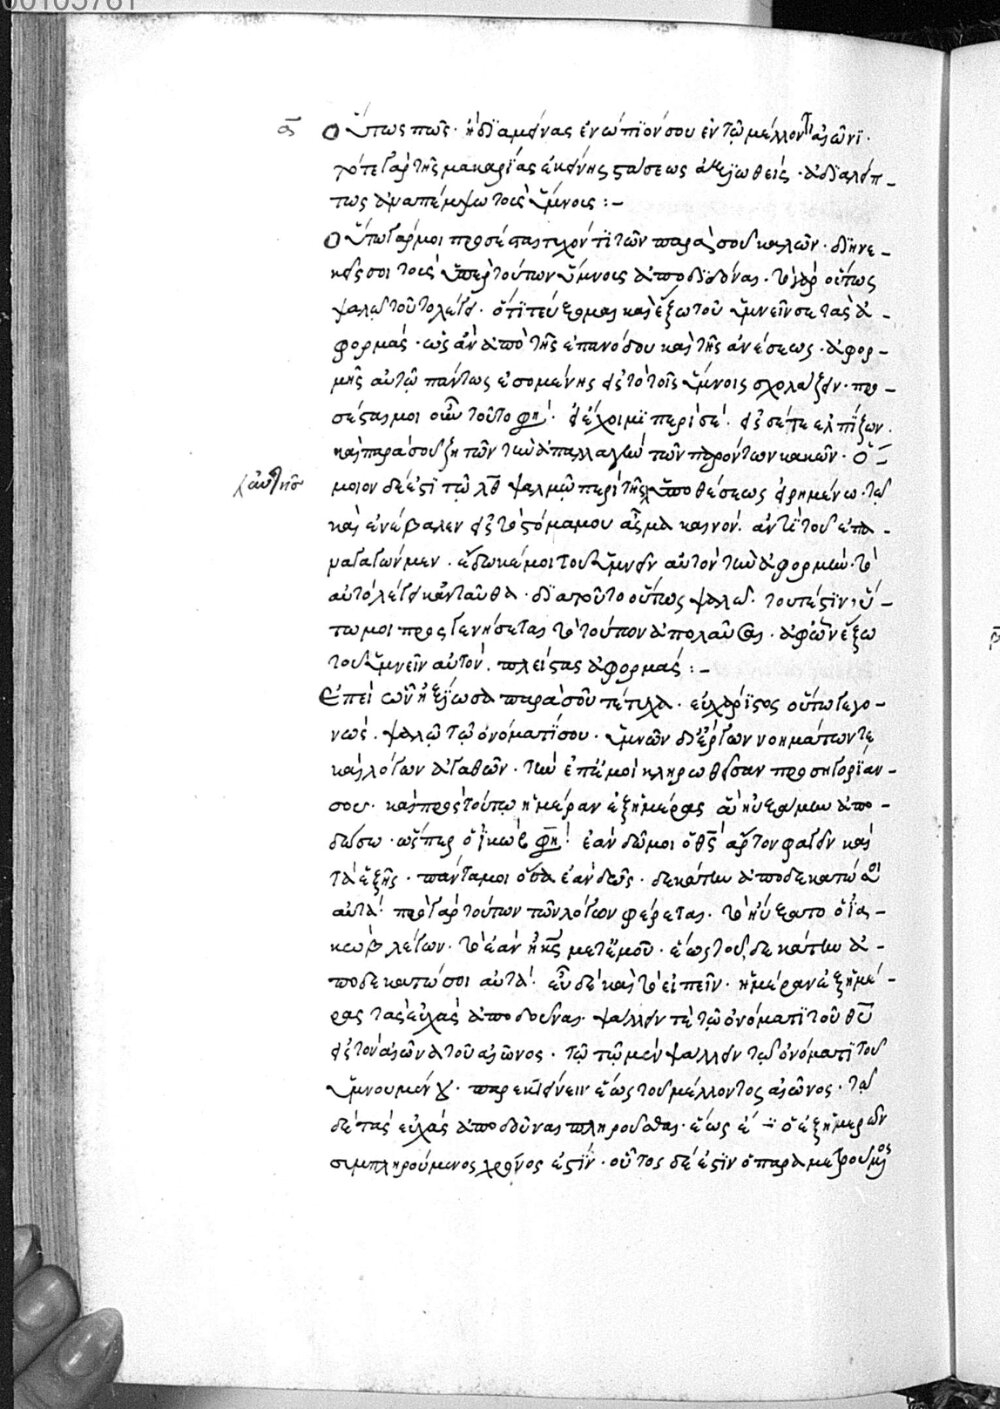 00105761
Οὕτως πῶς. ἢ διαμείνας ἐνώπιόν σου ἐν τῷ μέλλοντι αἰῶνι.
τότε γὰρ τῆς μακαρίας ἐκείνης στάσεως ἀξιωθεὶς. ἀδιαλείπ-
τως ἀναπέμψω τοὺς ὕμνους :-
Οὕτω γάρ μοι προσέσται τυχόντι τῶν παρὰ σοῦ καλῶν. διηνε-
κεῖς σοι τοὺς ὑπὲρ τούτων ὕμνους ἀποδιδόναι. τὸ γὰρ οὕτως
ψαλῶ τοῦτο λέγει. ὅτι τεύξομαι καὶ ἕξω τοῦ ὑμνεῖν σε τὰς ἀ-
φορμάς. ὡς ἂν ἀπὸ τῆς ἐπανόδου καὶ τῆς ἀνέσεως. ἀφορ-
μῆς αὐτῷ πάντως ἐσομένης εἰς τὸ τοῖς ὕμνοις σχολάζειν. προ-
σέσται μοι οὖν τοῦτο φησὶ.
καὶ παρὰ σοῦ ζητῶν τὴν ἀπαλλαγὴν τῶν παρόντων κακῶν. ὅ-
μοιον δέ ἐστι τῷ λθ ψαλμῷ περὶ τῆς ὑποθέσεως εἰρημένω. τῶ
καὶ ἐνέβαλεν εἰς τὸ στόμα μου ᾆσμα καινόν. ἀντὶ τοῦ
ἔδωκέ μοι τοῦ ὑμνεῖν αὐτὸν τὴν ἀφορμήν. τὸ
αὐτὸ λέγει κἀνταῦθα. διὰ τοῦτο οὕτως ψαλῶ. τουτέστιν, οὕ-
τω μοι προσγενήσεται τὸ τούτων ἀπολαῦσαι. ἀφ' ὧν ἕξω
τοῦ ὑμνεῖν αὐτὸν. πλείστας ἀφορμάς :-
Ἐπεὶ ὧν ἠξίωσα παρὰ σοῦ τετύχηκα. εὐχάριστος οὕτω γεγο-
νὼς. ψαλῶ τῷ ὀνόματί σου. ὑμνῶν δι' ἔργων νοημάτων τε
καὶ λόγων ἀγαθῶν. τὴν ἐπ' ἐμοὶ κληρωθεῖσαν προσηγορίαν
σου. καὶ πρὸς τούτω ἡμέραν ἐξ ἡμέρας ἃ ηὐξάμην ἀπο-
δώσω. ὥσπερ ὁ ἰακὼβ φησὶ. ἐὰν δῶ μοι ὁ θς ἄρτον φαγεῖν καὶ
τὰ ἑξῆς. πάντα μοι ὅσα ἐὰν δῷς. δεκάτην ἀποδεκατώσω
αὐτά. πρὸ γὰρ τούτων τῶν λόγων φέρεται. τὸ ηὔξατο ὁ ἰα-
κὼβ λέγων. τὸ ἐὰν ᾖ κς μετ' ἐμοῦ. ἕως τοῦ, δεκάτην ἀ-
ποδεκατώσω σοι αὐτά. εὖ δὲ καὶ τὸ εἰπεῖν. ἡμέραν ἐξ ἡμέ-
ρας τὰς εὐχὰς ἀποδοῦναι. ψάλλειν τε τῷ ὀνόματι τοῦ θυ
εἰς τὸν αἰῶνα τοῦ αἰῶνος. τῷ τῷ μὲν ψάλλειν τῷ ὀνόματι τοῦ
ὑμνουμένου. παρεκτείνειν ἕως τοῦ μέλλοντος αἰῶνος. τῷ
δὲ τὰς εὐχὰς ἀποδοῦναι πληροῦσθαι. ἕως ὁ ἐξ ἡμερῶν
συμπληρούμενος χρόνος ἐστίν. οὗτος δέ ἐστιν ὁ παραμετρούμενος